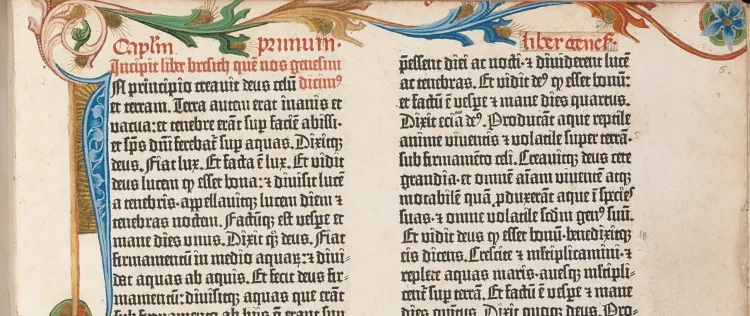 Caplm primum.
Incipit liber bresich quē nos genesim
In principio creavit deus celū dicim⁹
et terram. Terra autem erat inanis et
vacua: et tenebre erāt sup faciē abissi:
et sp̄s dn̄i ferebat̄ sup aquas. Dixitq;
deus. Fiat lux. Et facta ē lux. Et vidit
deus lucem q̄ esset bona: ⁊ divisit lucē
a tenebris. appellavitq; lucem diem ⁊
tenebras noctem. Factūq; est vespe et
mane dies unus. Dixit q̄q; deus. Fiat
firmamentū in medio aquaꝝ: ⁊ divi-
dat aquas ab aquis. Et fecit deus fir-
mamentū: divisitq; aquas que erāt
sub firmamento ab hijs q̄ erant sup
liber genesis
p̄essent diei ac nocti: ⁊ dividerent lucē
ac tenebras. Et vidit de⁹ q̄ esset bonū:
et factū ē vespe ⁊ mane dies quartus.
Dixit eciā de⁹. Producāt aque reptile
anime viventis ⁊ volatile super terrā:
sub firmamēto celi. Creavitq; deus cete
grandia. et omnē aīam viventē atq;
motabilē quā p̄duxerāt aque ī species
suas: ⁊ omne volatile scd̄m gen⁹ suū.
Et vidit deus q̄ esset bonū. benedixitq;
eis dicens. Crescite ⁊ m̄ltiplicamini. ⁊
replete aquas maris. avesq; m̄ltipli-
cent̄ sup terrā. Et factū ē vespe ⁊ mane
dies quītus. Dixit quoq; deus. Pro-
5.